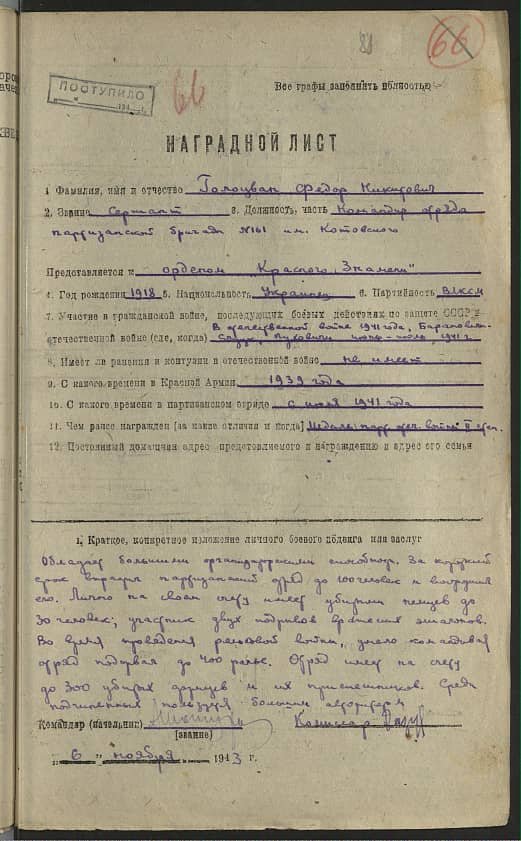 66
ПОСТУПИЛО
194 г.
66
Все графы заполнять полностью
НАГРАДНОЙ ЛИСТ
1. Фамилия, имя и отчество Голоцван Федор Никитович
2. Звание Сержант 3. Должность, часть Командир отряда
партизанской бригады №161 им. Котовского
Представляется к орденом "Красного Знамени"
4. Год рождения 1918 5. Национальность Украинец 6. Партийность ВЛКСМ
7. Участие в гражданской войне, последующих боевых действиях по защите СССР и
отечественной войне (где, когда) В отечественной войне 1941 года, Барановичи
Слуцк, Пуховичи июнь-июль 1941 г.
8. Имеет ли ранения и контузии в отечественной войне не имеет
9. С какого времени в Красной Армии 1939 года
10. С какого времени в партизанском отряде с июля 1941 года
11. Чем ранее награжден [за какие отличия и когда] Медаль парт. отеч. войны II степ.
12. Постоянный домашний адрес представляемого к награждению и адрес его семьи
1. Краткое, конкретное изложение личного боевого подвига или заслуг
Обладает большими организаторскими способност. За короткий
срок вырастил партизанский отряд до 100 человек и вооружил
его. Лично на своем счету имеет убитыми немцев до
30 человек; участник двух подрывов вражеских эшелонов.
Во время проведения рельсовой войны, умело командовал
отряд подорвал до 400 рельс. Отряд имеет на счету
до 300 убитых фрицев и их приспешников. Среди
подчиненных пользуется большим авторитетом
Командир (начальник) Комиссар
[звание]
"6" ноября 1943 г.